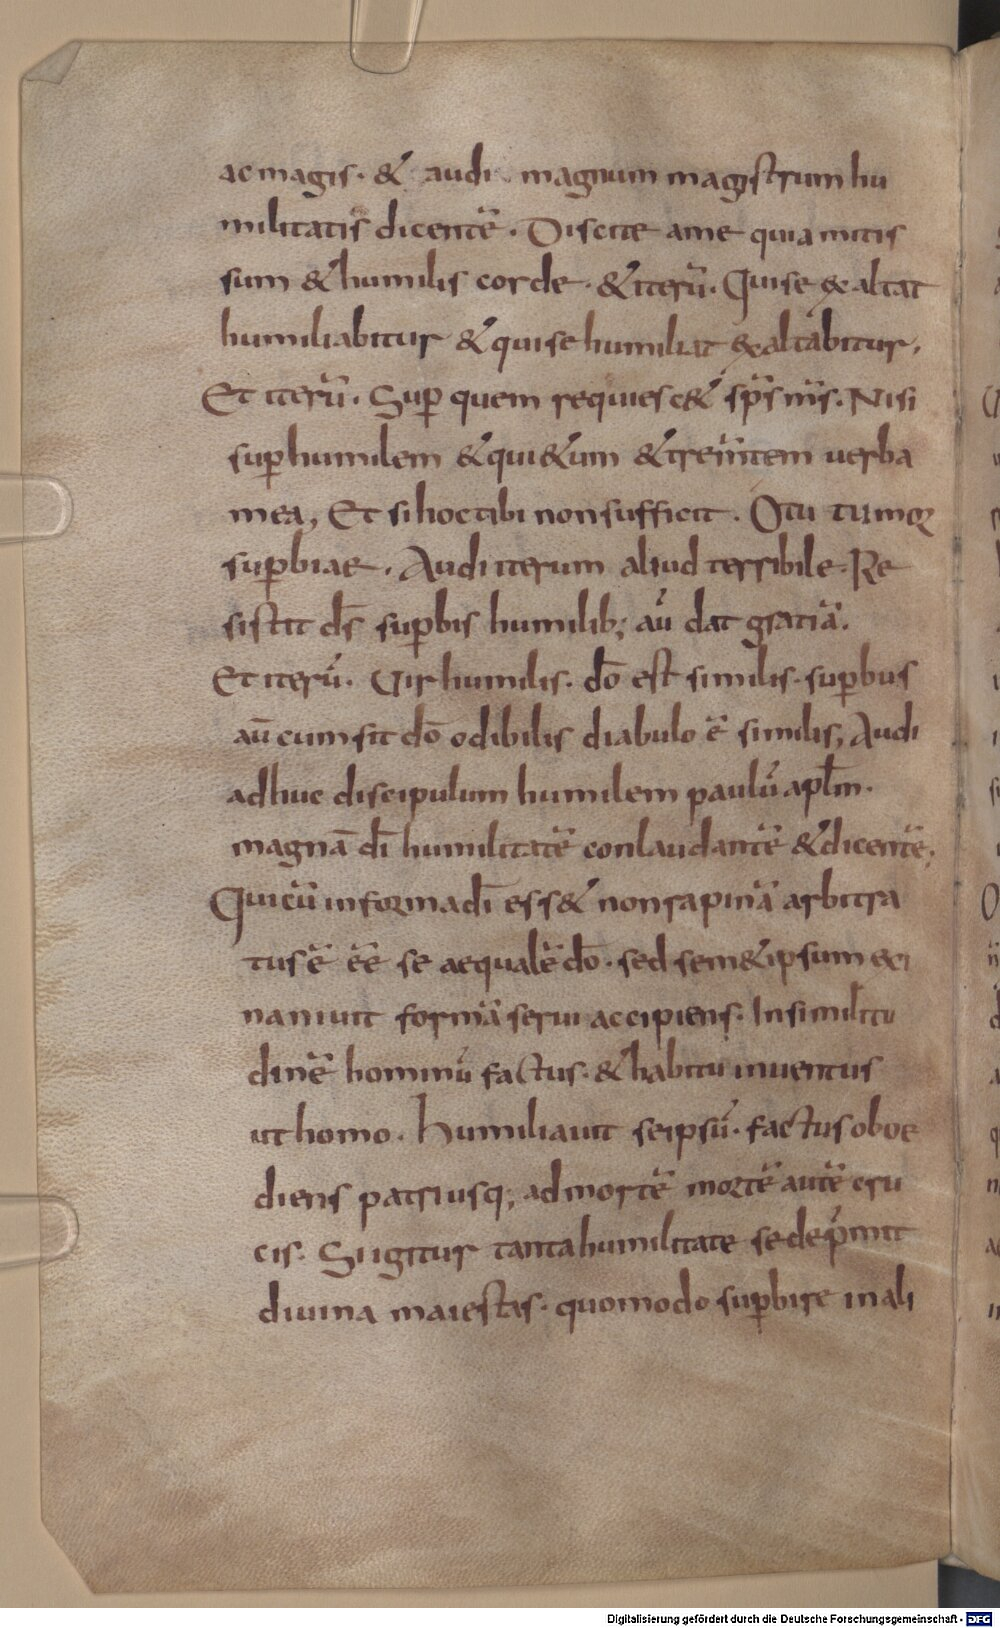 ac magis· & audi magnum magistrum hu
militatis dicentē· Discite ame quia mitis
sum & humilis corde· & iterū· Qui se exaltat
humiliabitur & qui se humiliat exaltabitur,
Et iterū· Suꝑ quem requiesc& sp̄s m̄s· Nisi
suꝑ humilem & qui&um & trem̄tem uerba
mea, Et si hoc tibi non sufficit· O tu tumor
suꝑbiae· Audi iterum aliud terribile· Re
sistit d̄s suꝑbis humilib; aū dat gratiā·
Et iterū· Uir humilis· dō est similis· suꝑbus
aū cum sit dō odibilis diabulo ē similis; Audi
adhuc discipulum humilem paulū apłm·
magnā dī humilitatē conlaudantē & dicentē;
Qui cū in forma dī ess& non rapinā arbitra
tus ē ēē se aequalē dō· sed sem&ipsum exi
naniuit formā serui accipiens· In similitu
dinē hominū factus· & habitu inuentus
ut homo· Humiliauit seipsū· factus oboe
diens patri usq; ad mortē mortē autē cru
cis· Si igitur tanta humilitate se dep̄mit
diuina maiestas· quomodo suꝑbire in ali
Digitalisierung gefördert durch die Deutsche Forschungsgemeinschaft - DFG